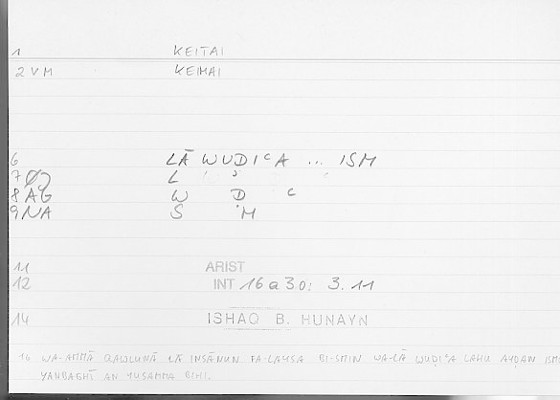 1 KEITAI
2 VM KEIMAI
6 LĀ WUDIʿA ... ISM
7 L
8 AG W D ʿ
9 NA S ʾM
11 ARIST
12 INT 16a30: 3.11
14 ISHAQ B. HUNAYN
16 WA-AMMĀ QAWLUNĀ LĀ INSĀNUN FA-LAYSA BI-SMIN WA-LĀ WUḌIʿA LAHU AYḌAN ISM
YANBAGHĪ AN YUSAMMĀ BIHI.